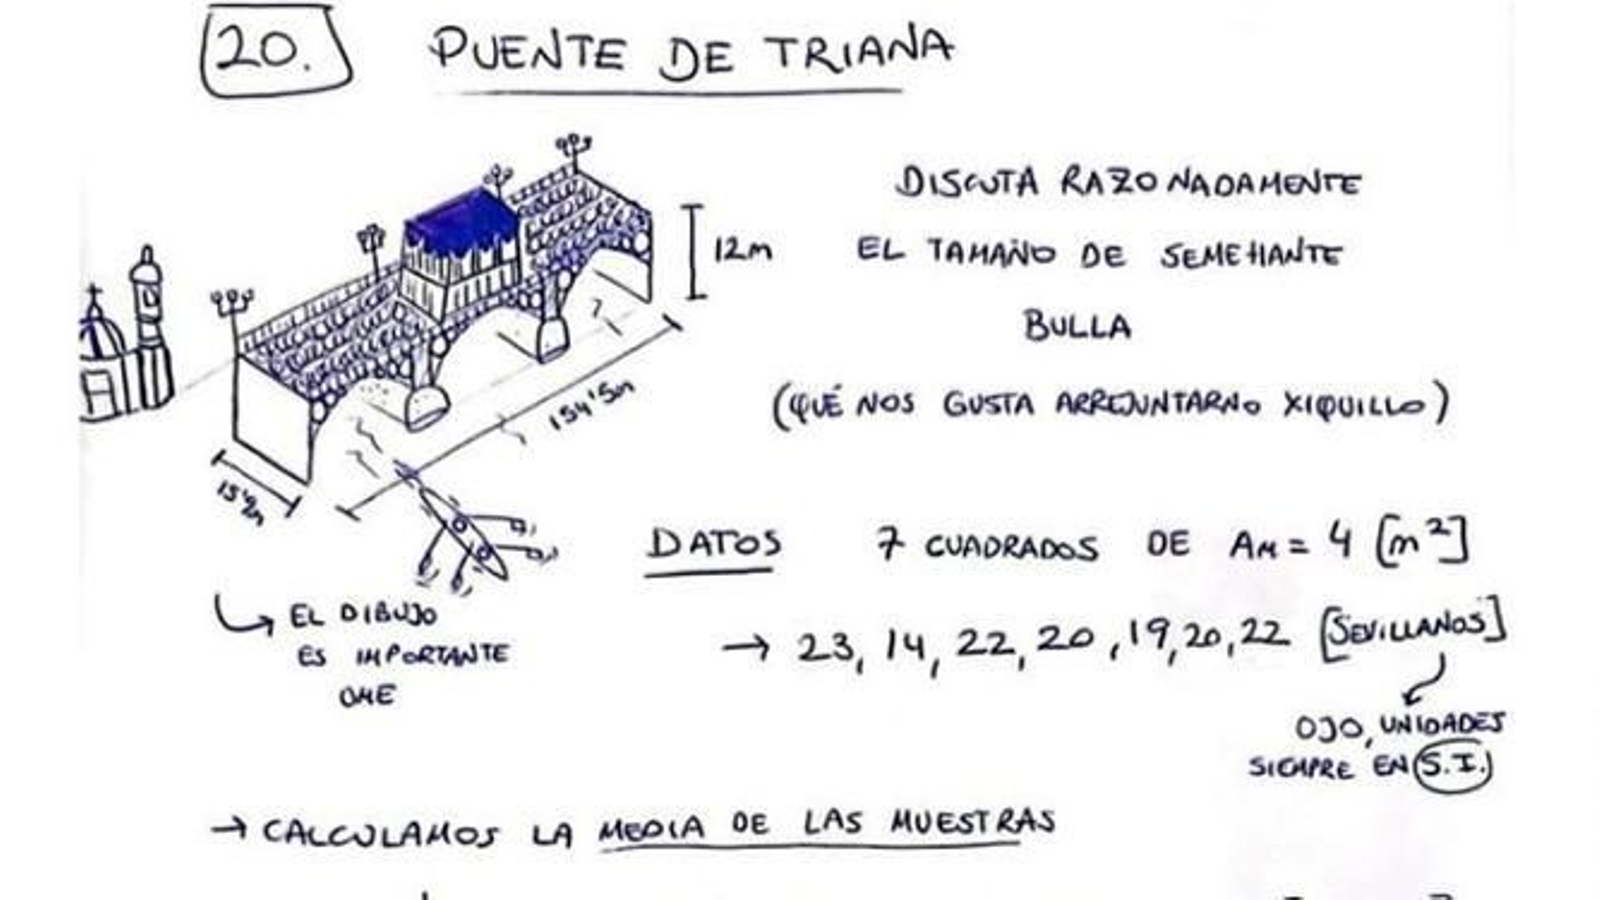 20. PUENTE DE TRIANA
DISCUTA RAZONADAMENTE
EL TAMAÑO DE SEMEHANTE
BULLA
(QUÉ NOS GUSTA ARREJUNTARNO XIQUILLO)
12m
154'5m
15'2m
EL DIBUJO
ES IMPORTANTE
OME
DATOS 7 CUADRADOS DE AM = 4 [m²]
→ 23, 14, 22, 20, 19, 20, 22 [SEVILLANOS]
OJO, UNIDADES
SIEMPRE EN S.I.
→ CALCULAMOS LA MEDIA DE LAS MUESTRAS